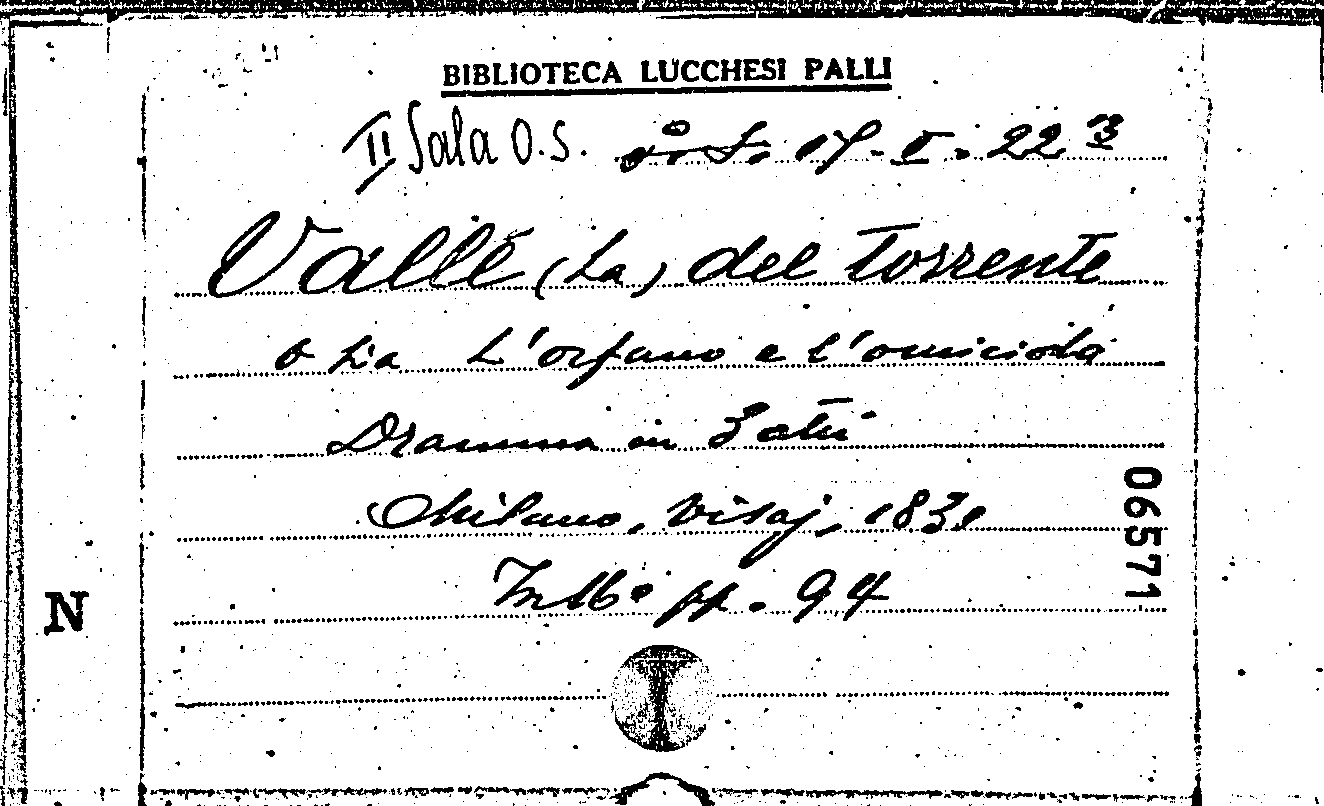 BIBLIOTECA LUCCHESI PALLI
II Sala O.S. 17-I.22
Valle (La) del torrente
o sia L'orfano e l'omicida
Dramma in 3 atti
Milano, Visaj, 1830
In 16° pp. 94
06571
N